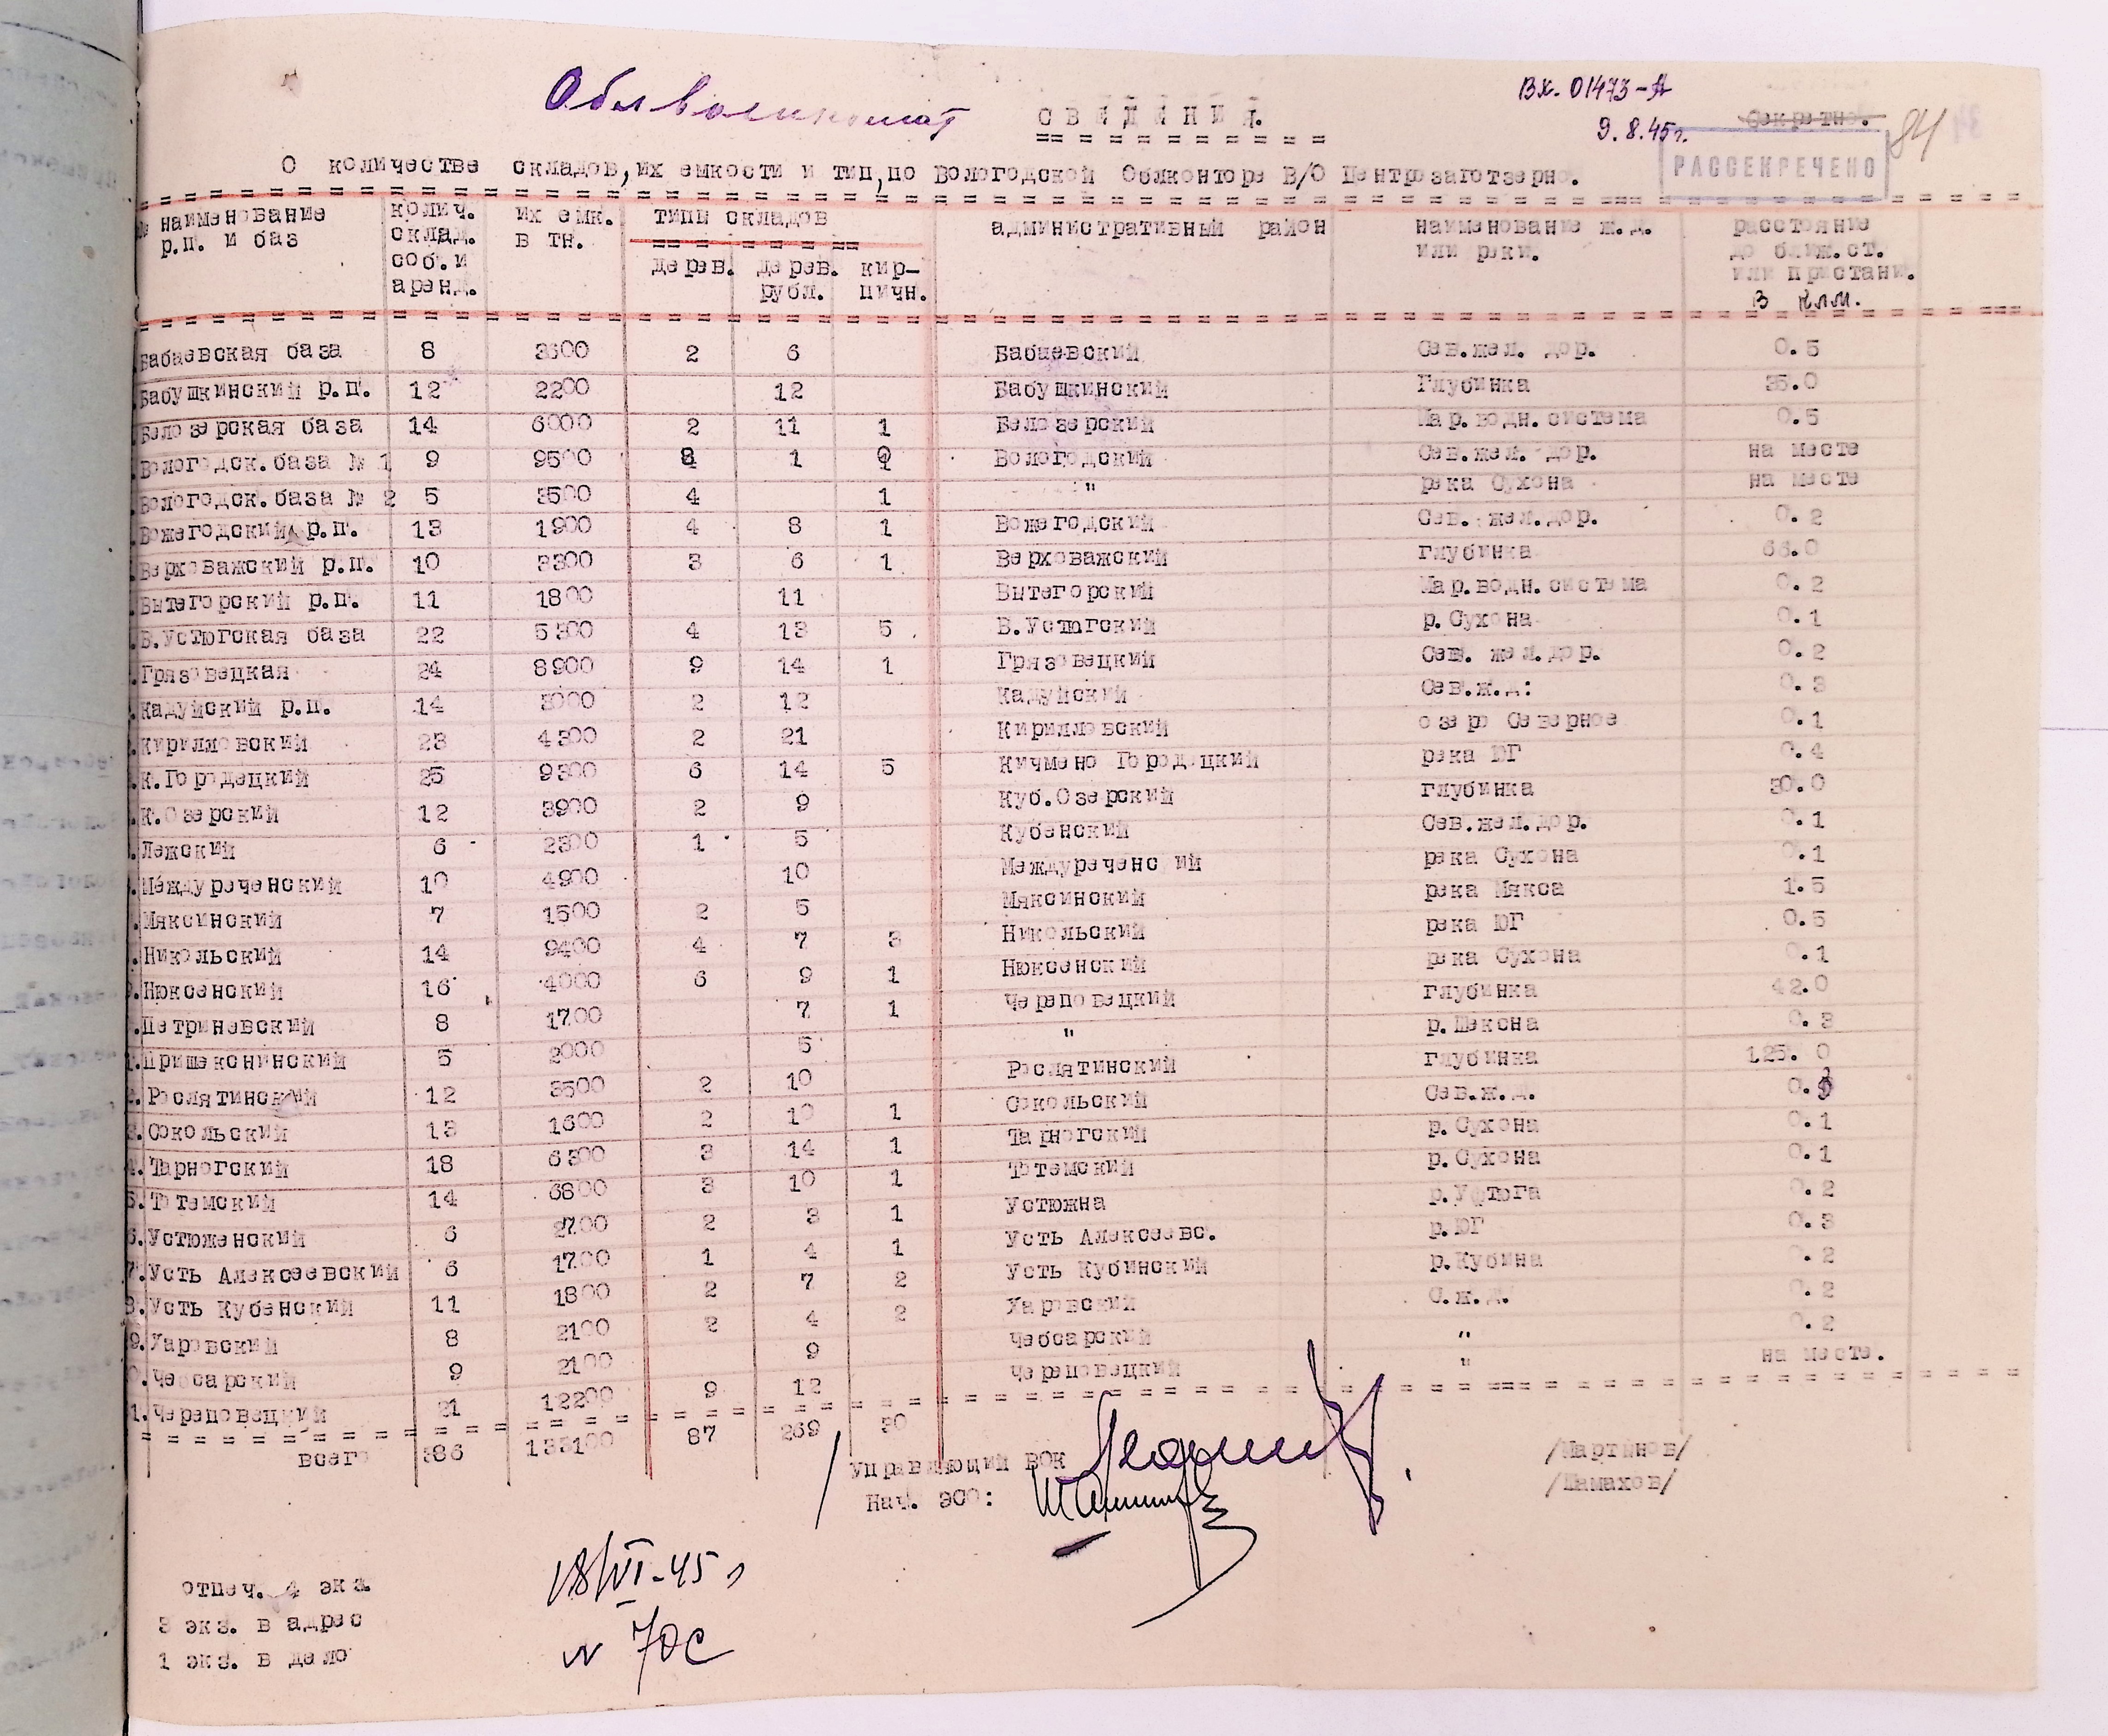 Облвоенкомат
Вх. 01473-А
9.8.45г.
СВЕДЕНИЯ.
Секретно.
84
РАССЕКРЕЧЕНО
О количестве складов, их емкости и тип, по Вологодской Облконторе В/О Центрозаготзерно.
наименование р.п. и баз | колич. склад. соб. и аренд. | их емк. в тн. | типы складов | административный район | наименование ж.д. или реки. | расстояние до ближ.ст. или пристани. в клм.
дерев. | дерев. рубл. | кирпичн.
Бабаевская база 8 3600 2 6 Бабаевский Сев.жел. дор. 0.5
Бабушкинский р.п. 12 2200 12 Бабушкинский Глубинка 35.0
Белозерская база 14 6000 2 11 1 Белозерский Мар.водн.система 0.5
Вологодск.база № 1 9 9500 8 1 Вологодский Сев.жел. дор. на месте
Вологодск.база № 2 5 3500 4 1 " река Сухона на месте
Вожегодский р.п. 13 1900 4 8 1 Вожегодский Сев. жел.дор. 0.2
Верховажский р.п. 10 3300 3 6 1 Верховажский глубинка 66.0
Вытегорский р.п. 11 1800 11 Вытегорский Мар.водн.система 0.2
В.Устюгская база 22 5300 4 13 5 В.Устюгский р.Сухона 0.1
Грязовецкая 24 8900 9 14 1 Грязовецкий Сев. жел.дор. 0.2
Кадуйский р.п. 14 3000 2 12 Кадуйский Сев.ж.д: 0.3
Кирилловский 23 4300 2 21 Кирилловский озеро Северное 0.1
К.Городецкий 25 9300 6 14 5 Кичмено Городецкий река ЮГ 0.4
К.Озерский 12 3900 2 9 Куб.Озерский глубинка 30.0
Лежский 6 2300 1 5 Кубенский Сев.жел.дор. 0.1
Междуреченский 10 4900 10 Междуреченс ий река Сухона 0.1
Мяксинский 7 1500 2 5 Мяксинский река Мякса 1.5
Никольский 14 9400 4 7 3 Никольский река ЮГ 0.5
Нюксенский 16 4000 6 9 1 Нюксенский река Сухона 0.1
Петриневский 8 1700 7 1 Череповецкий глубинка 42.0
1. Пришекснинский 5 2000 5 " р.Шексна 0.3
Рослятинский 12 3500 2 10 Рослятинский глубинка 125.0
3. Сокольский 13 1600 2 10 1 Сокольский Сев.ж.д. 0.
4. Тарногский 18 6300 3 14 1 Тарногский р.Сухона 0.1
5. Тотемский 14 6800 3 10 1 Тотемский р.Сухона 0.1
6. Устюженский 6 2700 2 3 1 Устюжна 0.2
7. Усть Алексеевский 6 1700 1 4 1 Усть Алексеевс. р.ЮГ 0.3
8. Усть Кубенский 11 1800 2 7 2 Усть Кубинский р.Кубина 0.2
9. Харовский 8 2100 2 4 2 Харовский С.ж.д. 0.2
0. Чебсарский 9 2100 9 Чебсарский " 0.2
1. Череповецкий 21 12200 9 12 Череповецкий " на месте.
всего 386 133100 87 269 30
Управляющий ВОК /Мартынов/
Нач. ЭСО: /Шамахов/
отпеч. 4 экз.
3 экз. в адрес
1 экз. в дело
18/VI-45 г
№ 70с